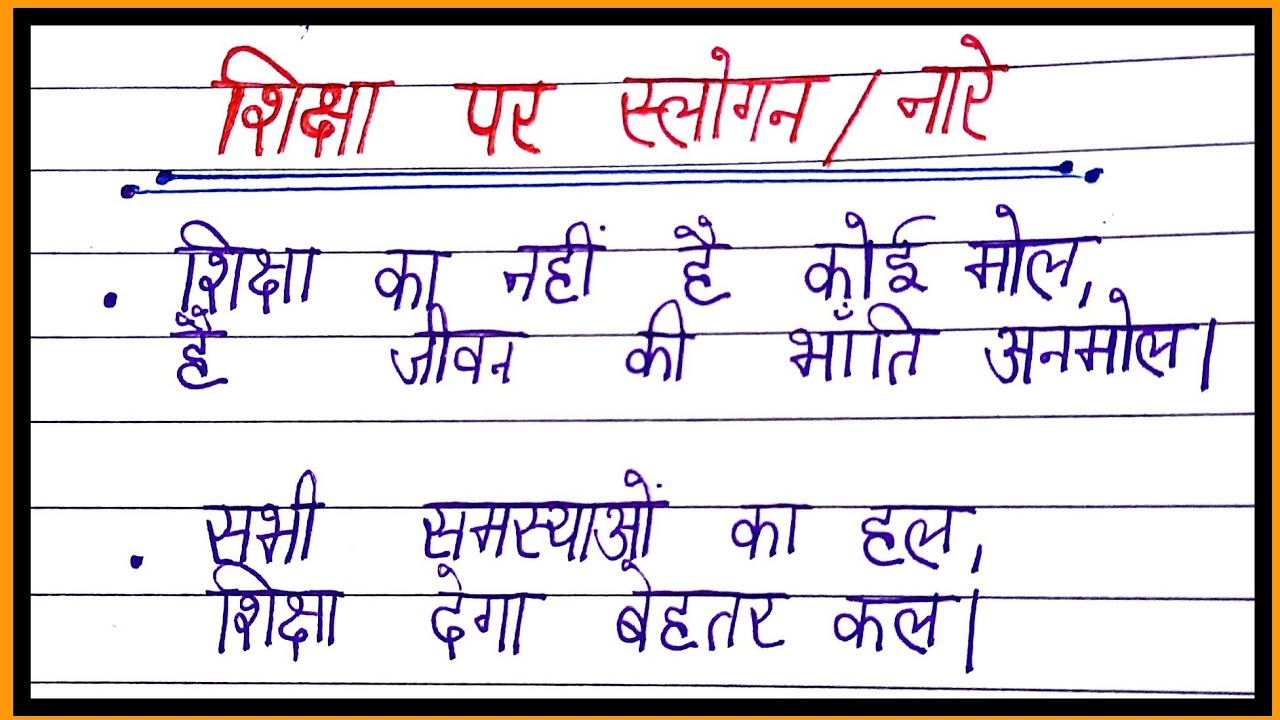 शिक्षा पर स्लोगन / नारे
. शिक्षा का नहीं है कोई मोल,
है जीवन की भाँति अनमोल।
. सभी समस्याओं का हल,
शिक्षा देगा बेहतर कल।